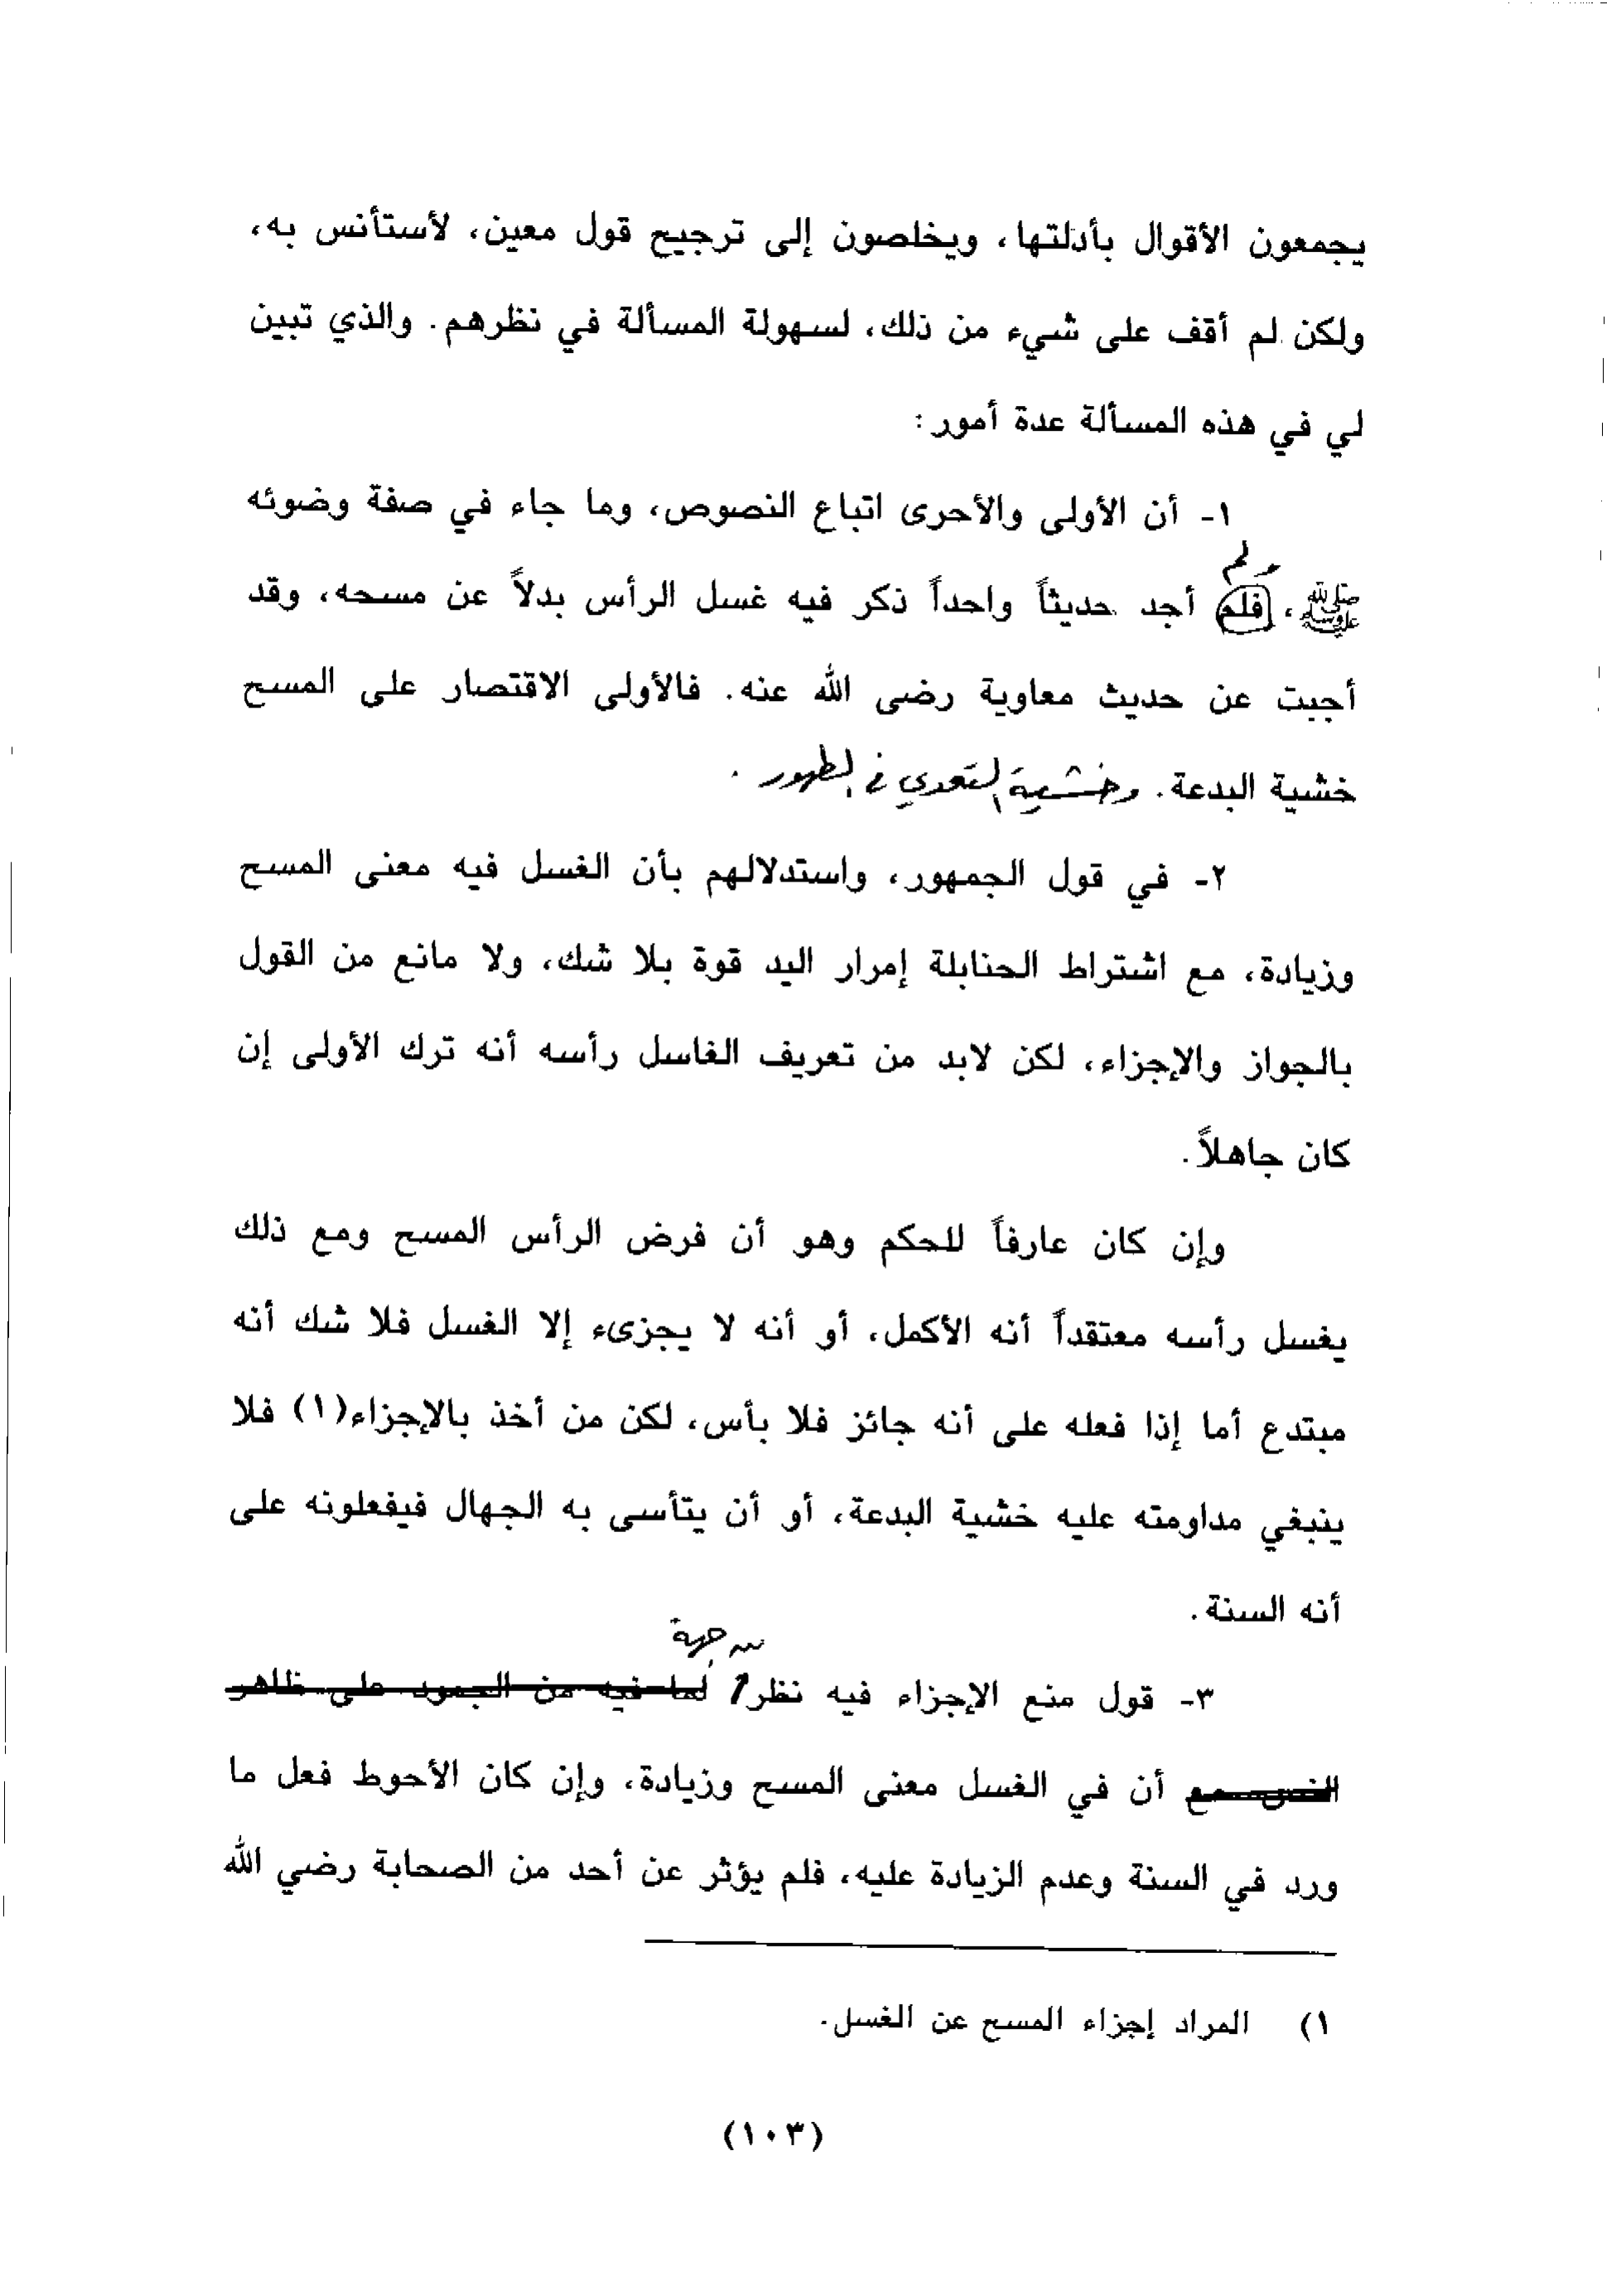 يجمعون الأقوال بأدلتها، ويخلصون إلى ترجيح قول معين، لأستأنس به،
ولكن لم أقف على شيء من ذلك، لسهولة المسألة في نظرهم. والذي تبين
لي في هذه المسألة عدة أمور:
١- أن الأولى والأحرى اتباع النصوص، وما جاء في صفة وضوئه
ولم
ﷺ، فلم أجد حديثاً واحداً ذكر فيه غسل الرأس بدلاً عن مسحه، وقد
أجبت عن حديث معاوية رضى الله عنه. فالأولى الاقتصار على المسح
خشية البدعة. وخشية التعدي في الطهور.
٢- في قول الجمهور، واستدلالهم بأن الغسل فيه معنى المسح
وزيادة، مع اشتراط الحنابلة إمرار اليد قوة بلا شك، ولا مانع من القول
بالجواز والإجزاء، لكن لابد من تعريف الغاسل رأسه أنه ترك الأولى إن
كان جاهلاً.
وإن كان عارفاً للحكم وهو أن فرض الرأس المسح ومع ذلك
يغسل رأسه معتقداً أنه الأكمل، أو أنه لا يجزىء إلا الغسل فلا شك أنه
مبتدع أما إذا فعله على أنه جائز فلا بأس، لكن من أخذ بالإجزاء(١) فلا
ينبغي مداومته عليه خشية البدعة، أو أن يتأسى به الجهال فيفعلونه على
أنه السنة.
من جهة
٣- قول منع الإجزاء فيه نظر لما فيه من الجمود على ظاهر
النص مع أن في الغسل معنى المسح وزيادة، وإن كان الأحوط فعل ما
ورد في السنة وعدم الزيادة عليه، فلم يؤثر عن أحد من الصحابة رضي الله
١) المراد إجزاء المسح عن الغسل.
(١٠٣)